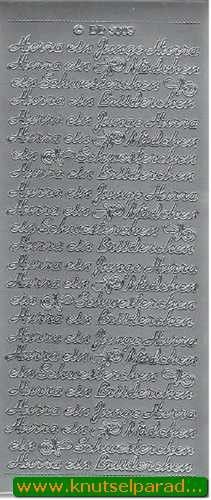 © EE 3018
Hurra ein Junge Hurra
Hurra ein Mädchen
ein Schwesterchen
Hurra ein Brüderchen
Hurra ein Junge Hurra
Hurra ein Mädchen
ein Schwesterchen
Hurra ein Brüderchen
Hurra ein Junge Hurra
Hurra ein Mädchen
ein Schwesterchen
Hurra ein Brüderchen
Hurra ein Junge Hurra
Hurra ein Mädchen
ein Schwesterchen
Hurra ein Brüderchen
Hurra ein Junge Hurra
Hurra ein Mädchen
ein Schwesterchen
Hurra ein Brüderchen
Hurra ein Junge Hurra
Hurra ein Mädchen
ein Schwesterchen
Hurra ein Brüderchen
www.knutselparad...